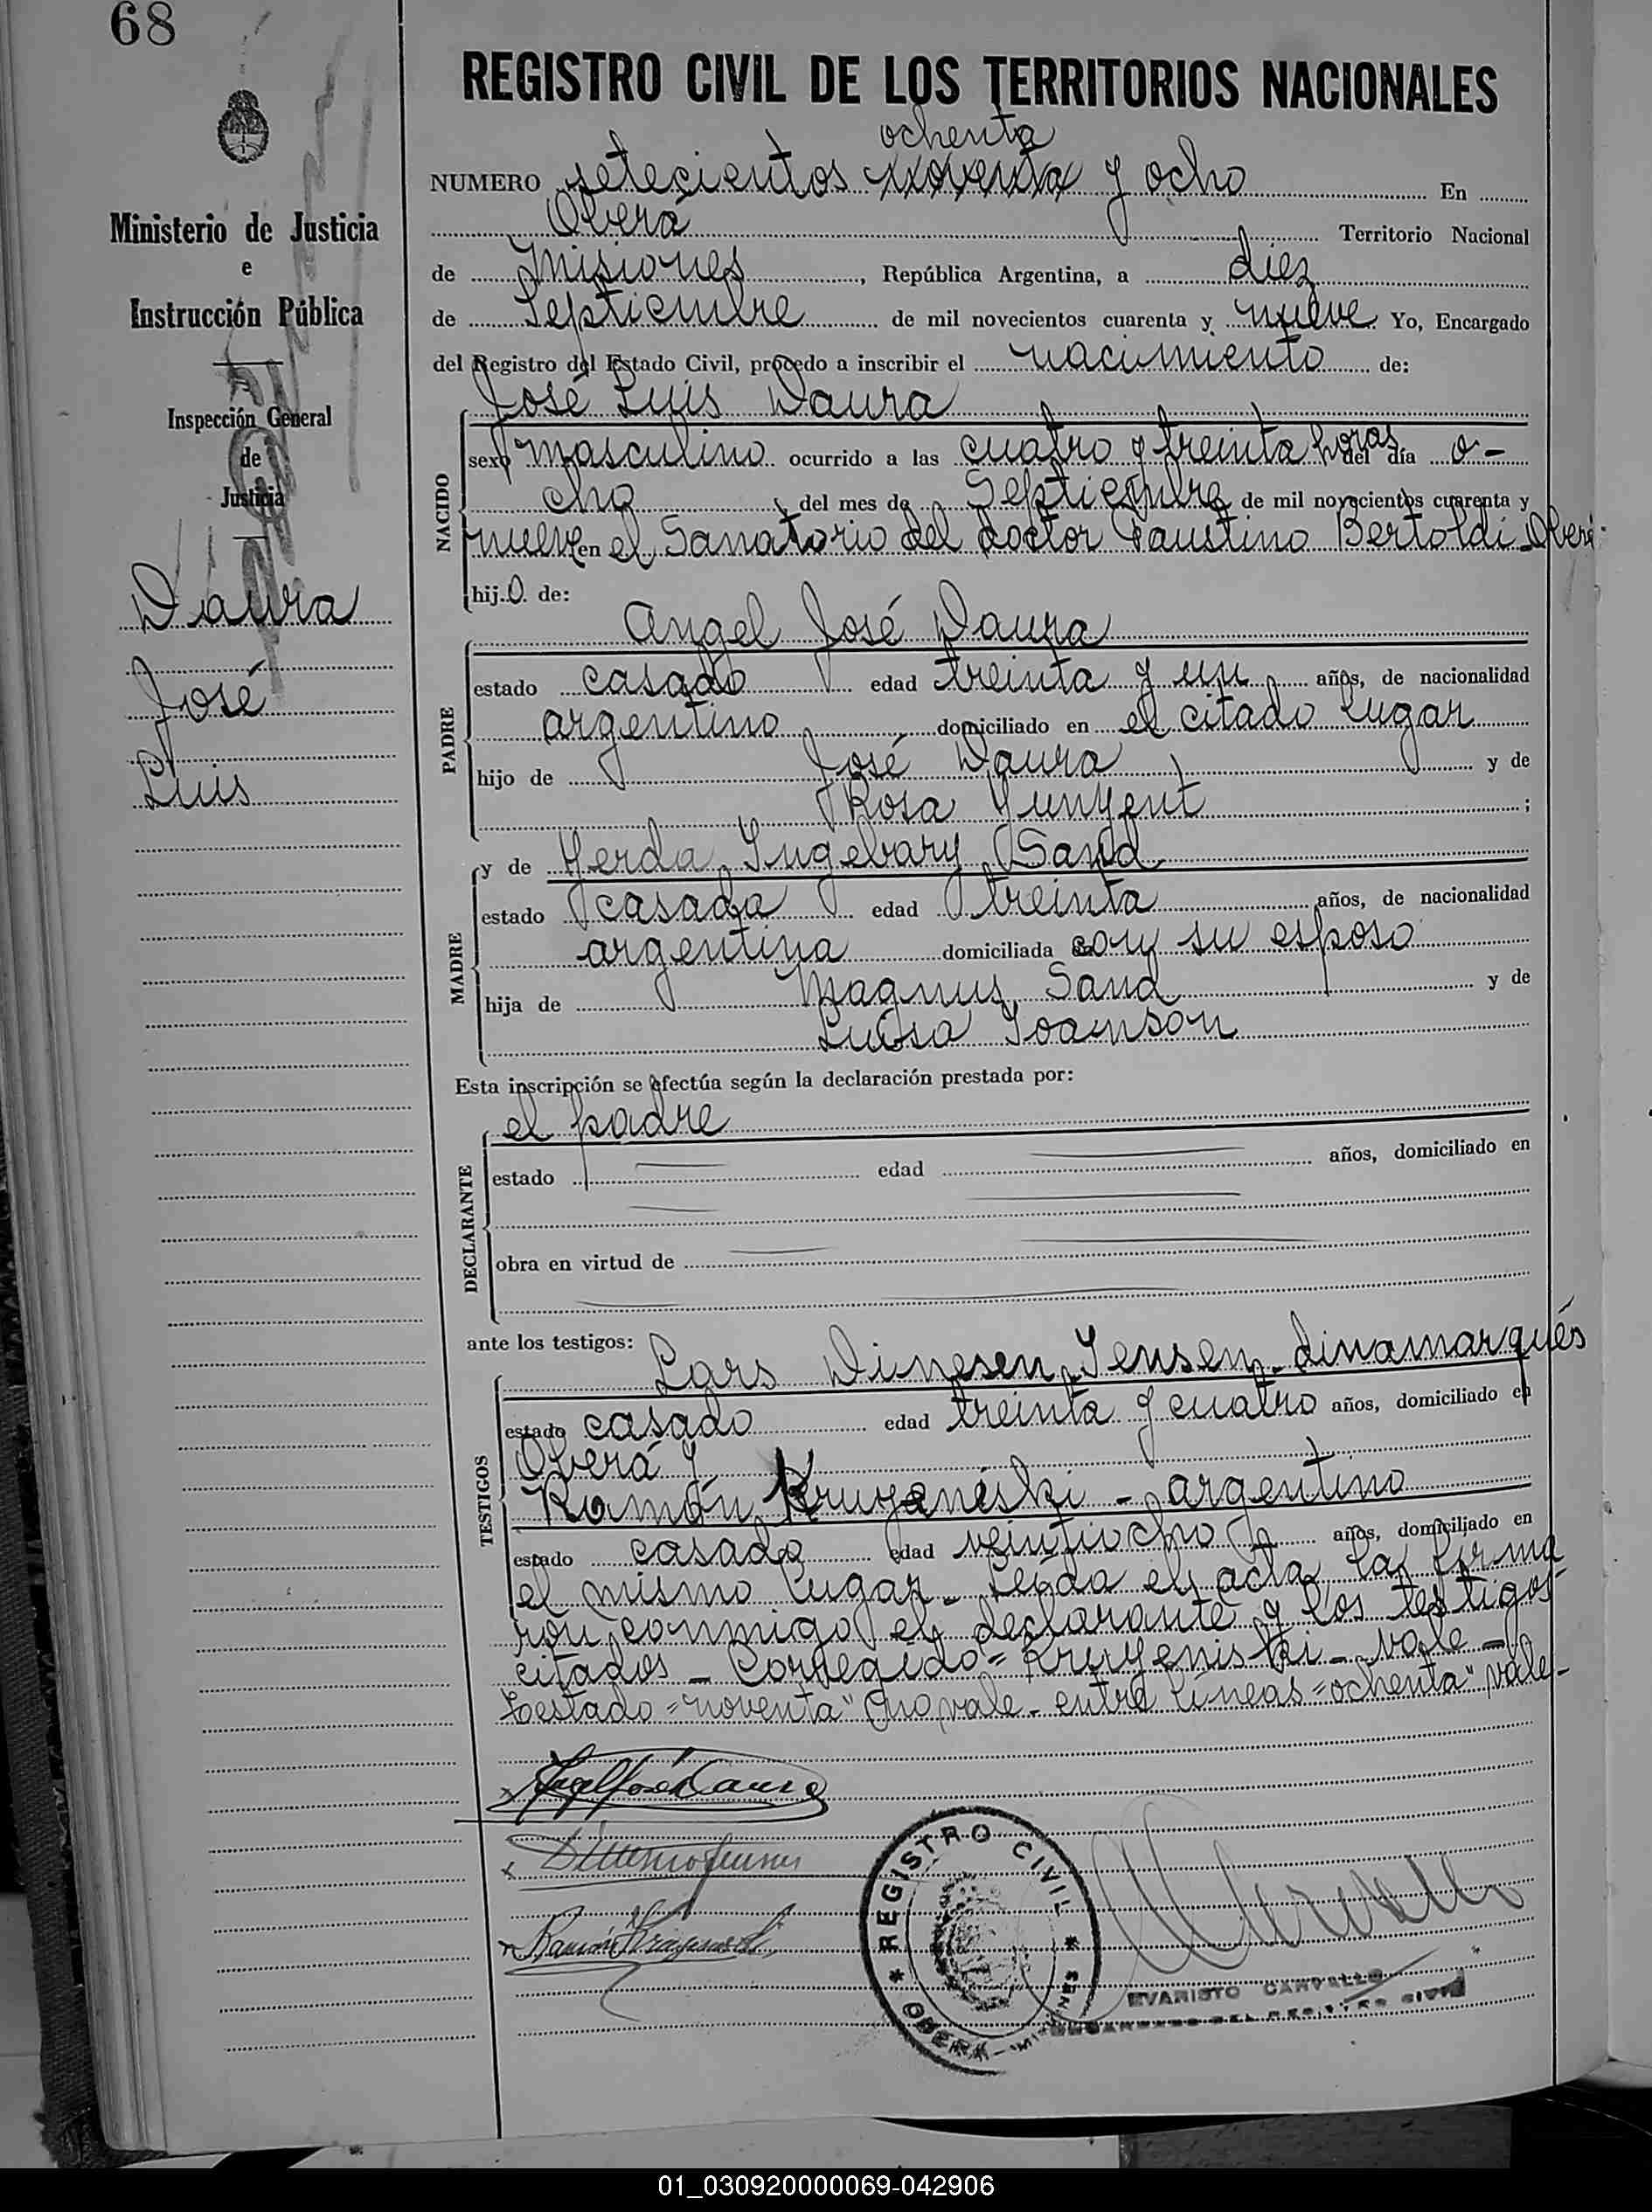 68
REGISTRO CIVIL DE LOS TERRITORIOS NACIONALES
ochenta
NUMERO setecientos noventa y ocho En
Oberá Territorio Nacional
de Misiones, República Argentina, a diez
de Septiembre de mil novecientos cuarenta y nueve Yo, Encargado
del Registro del Estado Civil, procedo a inscribir el nacimiento de:
Ministerio de Justicia
e
Instrucción Pública
Inspección General
de
Justicia
Daura
José
Luis
NACIDO
José Luis Daura
sexo masculino ocurrido a las cuatro y treinta horas del día o-
cho del mes de Septiembre de mil novecientos cuarenta y
nueve en el Sanatorio del doctor Faustino Bertoldi - Oberá
hijo de:
PADRE
Angel José Daura
estado casado edad treinta y un años, de nacionalidad
argentino domiciliado en el citado lugar
hijo de José Daura y de
Rosa Yunyent;
MADRE
y de Yerda Ingebary Sand
estado casada edad treinta años, de nacionalidad
argentina domiciliada con su esposo
hija de Magnus Sand y de
Luisa Joanson
Esta inscripción se efectúa según la declaración prestada por:
DECLARANTE
el padre
estado edad años, domiciliado en
obra en virtud de
ante los testigos:
TESTIGOS
Lars Dinesen Jensen - dinamarqués
estado casado edad treinta y cuatro años, domiciliado en
Oberá y
Ramón Kruyeniski - argentino
estado casado edad veintiocho años, domiciliado en
el mismo lugar - Leída el acta, la firma
ron conmigo el declarante y los testigos
citados - Corregido = Kruyeniski - vale -
Testado = "noventa" no vale - entre líneas = "ochenta" vale -
Angel José Daura
REGISTRO CIVIL
* OBERA - MISIONES *
EVARISTO CARVALLO
ENCARGADO DEL REGISTRO CIVIL
01_030920000069-042906